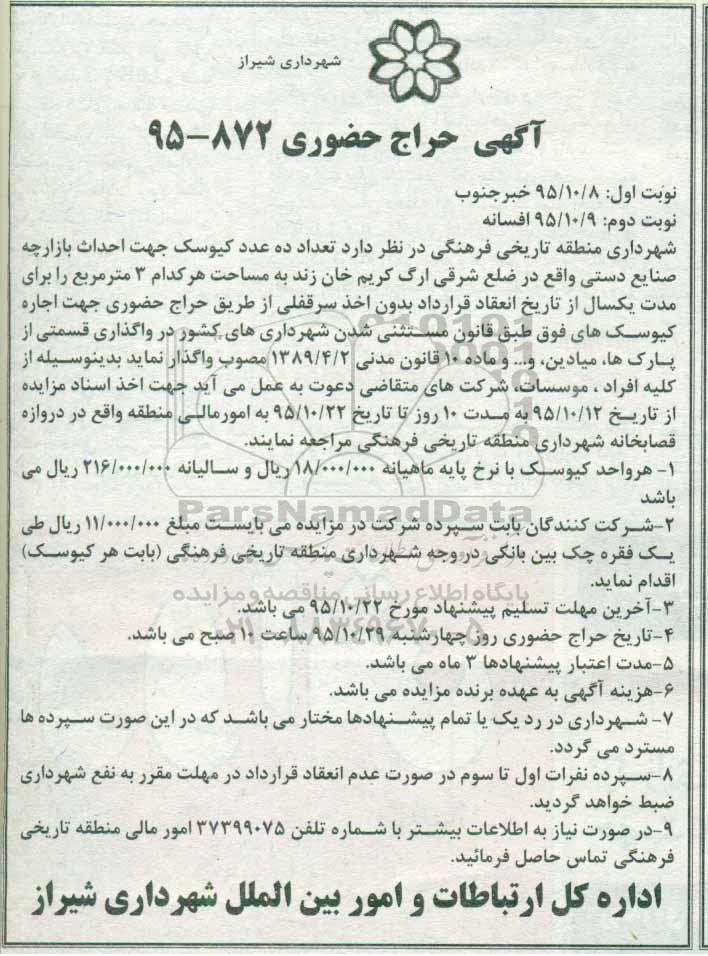 شهرداری شیراز
آگهی حراج حضوری ۸۷۲-۹۵
نوبت اول: ۹۵/۱۰/۸ خبرجنوب
نوبت دوم: ۹۵/۱۰/۹ افسانه
شهرداری منطقه تاریخی فرهنگی در نظر دارد تعداد ده عدد کیوسک جهت احداث بازارچه
صنایع دستی واقع در ضلع شرقی ارگ کریم خان زند به مساحت هرکدام ۳ مترمربع را برای
مدت یکسال از تاریخ انعقاد قرارداد بدون اخذ سرقفلی از طریق حراج حضوری جهت اجاره
کیوسک های فوق طبق قانون مستثنی شدن شهرداری های کشور در واگذاری قسمتی از
پارک ها، میادین، و... و ماده ۱۰ قانون مدنی ۱۳۸۹/۴/۲ مصوب واگذار نماید بدینوسیله از
کلیه افراد ، موسسات، شرکت های متقاضی دعوت به عمل می آید جهت اخذ اسناد مزایده
از تاریخ ۹۵/۱۰/۱۲ به مدت ۱۰ روز تا تاریخ ۹۵/۱۰/۲۲ به امورمالی منطقه واقع در دروازه
قصابخانه شهرداری منطقه تاریخی فرهنگی مراجعه نمایند.
۱- هرواحد کیوسک با نرخ پایه ماهیانه ۱۸/۰۰۰/۰۰۰ ریال و سالیانه ۲۱۶/۰۰۰/۰۰۰ ریال می
باشد
۲-شرکت کنندگان بابت سپرده شرکت در مزایده می بایست مبلغ ۱۱/۰۰۰/۰۰۰ ریال طی
یک فقره چک بین بانکی در وجه شهرداری منطقه تاریخی فرهنگی (بابت هر کیوسک)
اقدام نماید.
۳-آخرین مهلت تسلیم پیشنهاد مورخ ۹۵/۱۰/۲۲ می باشد.
۴-تاریخ حراج حضوری روز چهارشنبه ۹۵/۱۰/۲۹ ساعت ۱۰ صبح می باشد.
۵-مدت اعتبار پیشنهادها ۳ ماه می باشد.
۶-هزینه آگهی به عهده برنده مزایده می باشد.
۷- شهرداری در رد یک یا تمام پیشنهادها مختار می باشد که در این صورت سپرده ها
مسترد می گردد.
۸-سپرده نفرات اول تا سوم در صورت عدم انعقاد قرارداد در مهلت مقرر به نفع شهرداری
ضبط خواهد گردید.
۹-در صورت نیاز به اطلاعات بیشتر با شماره تلفن ۳۷۳۹۹۰۷۵ امور مالی منطقه تاریخی
فرهنگی تماس حاصل فرمائید.
اداره کل ارتباطات و امور بین الملل شهرداری شیراز
ParsNamadData
پایگاه اطلاع رسانی مناقصه و مزایده